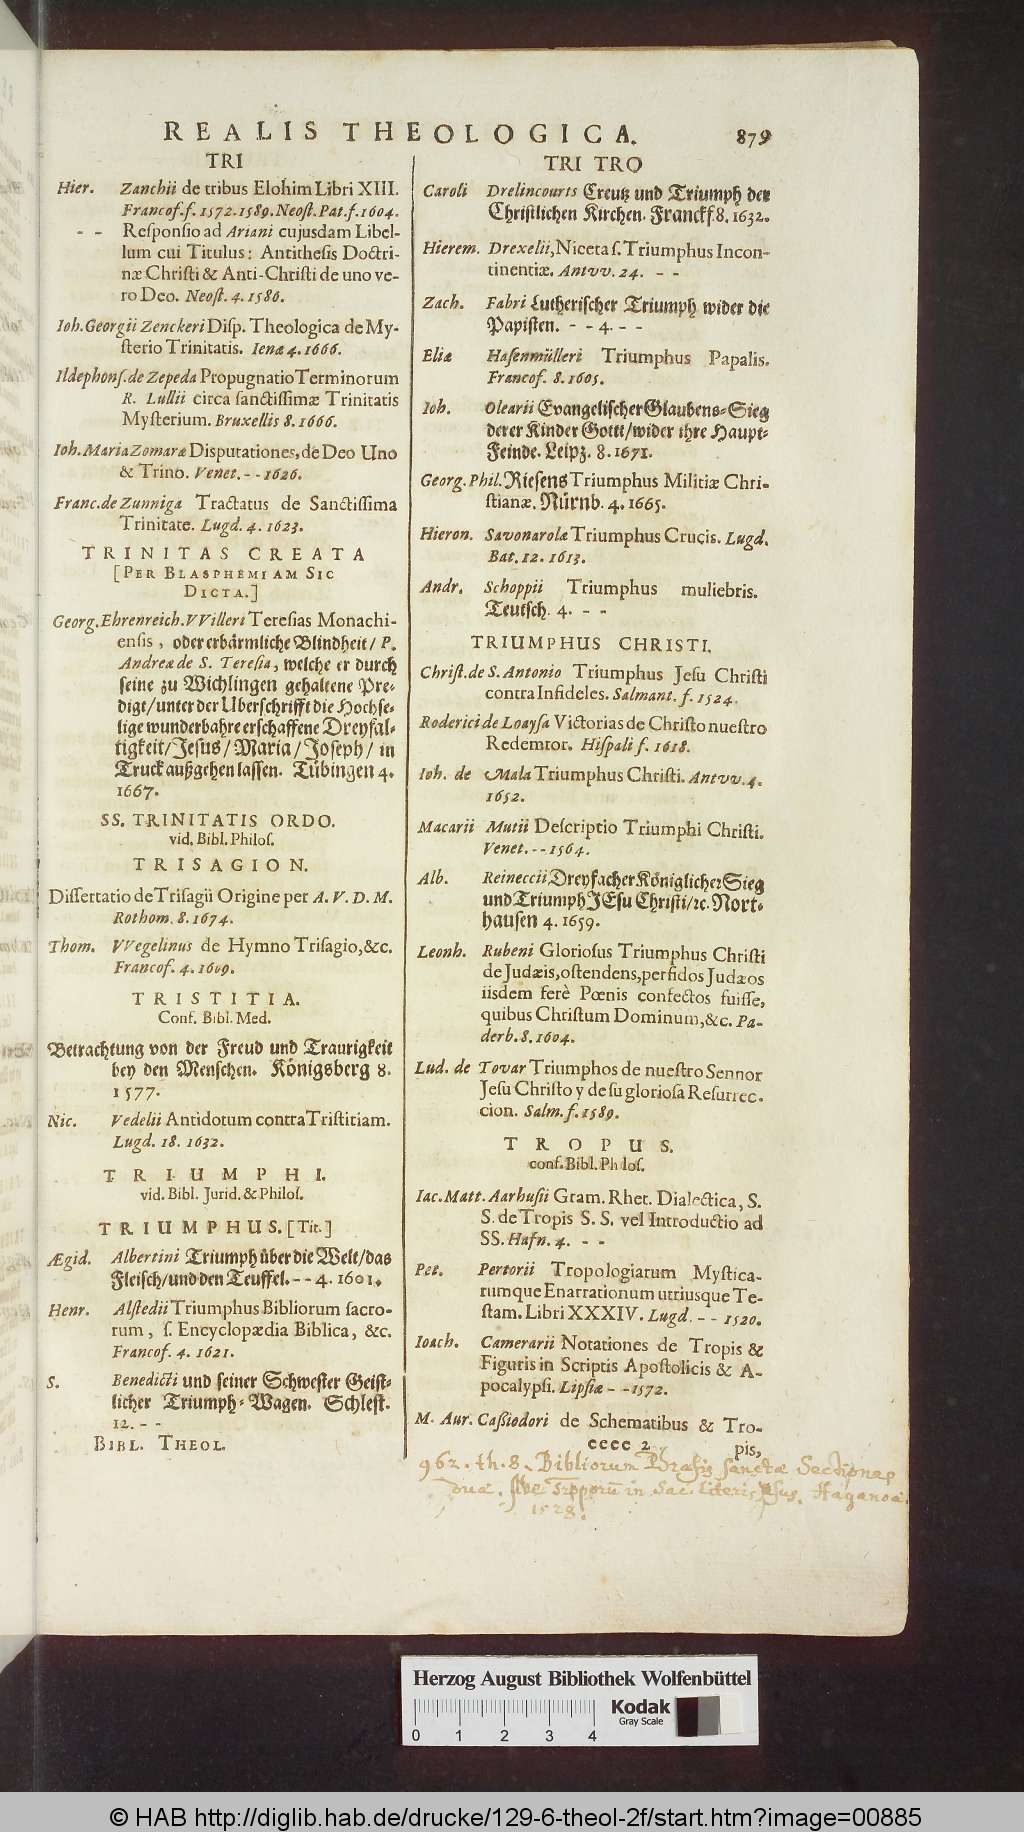 REALIS THEOLOGICA. 879
TRI
Hier. Zanchii de tribus Elohim Libri XIII.
Francof. f. 1572. 1589. Neost. Pat. f. 1604.
- - Responsio ad Ariani cujusdam Libel-
lum cui Titulus: Antithesis Doctri-
næ Christi & Anti-Christi de uno ve-
ro Deo. Neost. 4. 1586.
Ioh. Georgii Zenckeri Disp. Theologica de My-
sterio Trinitatis. Ienæ 4. 1666.
Ildephons. de Zepeda Propugnatio Terminorum
R. Lullii circa sanctissimæ Trinitatis
Mysterium. Bruxellis 8. 1666.
Ioh. Maria Zomaræ Disputationes, de Deo Uno
& Trino. Venet. - - 1626.
Franc. de Zunniga Tractatus de Sanctissima
Trinitate. Lugd. 4. 1623.
TRINITAS CREATA
[PER BLASPHEMIAM SIC
DICTA.]
Georg. Ehrenreich. VVilleri Teresias Monachi-
ensis, oder erbärmliche Blindheit / P.
Andreæ de S. Teresia, welche er durch
seine zu Wichlingen gehaltene Pre-
digt/unter der Uberschrifft die Hochse-
lige wunderbahre erschaffene Dreyfal-
tigkeit/Jesus/Maria/Joseph/ in
Truck außgehen lassen. Tübingen 4.
1667.
SS. TRINITATIS ORDO.
vid. Bibl. Philos.
TRISAGION.
Dissertatio de Trisagii Origine per A. V. D. M.
Rothom. 8. 1674.
Thom. VVegelinus de Hymno Trisagio, &c.
Francof. 4. 1609.
TRISTITIA.
Conf. Bibl. Med.
Betrachtung von der Freud und Traurigkeit
bey den Menschen. Königsberg 8.
1577.
Nic. Vedelii Antidotum contra Tristitiam.
Lugd. 18. 1632.
TRIUMPHI.
vid. Bibl. Jurid. & Philos.
TRIUMPHUS. [Tit.]
Ægid. Albertini Triumph über die Welt/das
Fleisch/und den Teuffel. - - 4. 1601.
Henr. Alstedii Triumphus Bibliorum sacro-
rum, s. Encyclopædia Biblica, &c.
Francof. 4. 1621.
S. Benedicti und seiner Schwester Geist-
licher Triumph-Wagen. Schlest.
12. - -
BIBL. THEOL.
TRI TRO
Caroli Drelincourts Creutz und Triumph der
Christlichen Kirchen. Franckf 8. 1632.
Hierem. Drexelii, Niceta s. Triumphus Incon-
tinentiæ. Antvv. 24. - -
Zach. Fabri Lutherischer Triumph wider die
Papisten. - - 4. - -
Eliæ Hasenmülleri Triumphus Papalis.
Francof. 8. 1605.
Ioh. Olearii Evangelischer Glaubens-Sieg
derer Kinder Gottt/wider ihre Haupt-
Feinde. Leipz. 8. 1671.
Georg. Phil. Riesens Triumphus Militiæ Chri-
stianæ. Nürnb. 4. 1665.
Hieron. Savonarolæ Triumphus Crucis. Lugd.
Bat. 12. 1613.
Andr. Schoppii Triumphus muliebris.
Teutsch. 4. - -
TRIUMPHUS CHRISTI.
Christ. de S. Antonio Triumphus Jesu Christi
contra Infideles. Salmant. f. 1524.
Roderici de Loaysa Victorias de Christo nuestro
Redemtor. Hispali f. 1618.
Ioh. de Mala Triumphus Christi. Antvv. 4.
1652.
Macarii Mutii Descriptio Triumphi Christi.
Venet. - - 1564.
Alb. Reineccii Dreyfacher Königlicher Sieg
und Triumph JEsu Christi/ꝛc. Nort-
hausen 4. 1659.
Leonh. Rubeni Gloriosus Triumphus Christi
de Judæis, ostendens, perfidos Judæos
iisdem ferè Pœnis confectos fuisse,
quibus Christum Dominum, &c. Pa-
derb. 8. 1604.
Lud. de Tovar Triumphos de nuestro Sennor
Jesu Christo y de su gloriosa Resurrec-
cion. Salm. f. 1589.
TROPUS.
conf. Bibl. Philos.
Iac. Matt. Aarhusii Gram. Rhet. Dialectica, S.
S. de Tropis S. S. vel Introductio ad
SS. Hafn. 4. - -
Pet. Pertorii Tropologiarum Mystica-
rumque Enarrationum utriusque Te-
stam. Libri XXXIV. Lugd. - - 1520.
Ioach. Camerarii Notationes de Tropis &
Figuris in Scriptis Apostolicis & A-
pocalypsi. Lipsiæ - - 1572.
M. Aur. Caßiodori de Schematibus & Tro-
cccc 2 pis,
962. th. 8. Bibliorum Phrasis sanctæ Sectiones
duæ, sive Troporū in Sac. literis usus. Haganoæ.
1528.
Herzog August Bibliothek Wolfenbüttel
0 1 2 3 4
Kodak
Gray Scale
© HAB http://diglib.hab.de/drucke/129-6-theol-2f/start.htm?image=00885